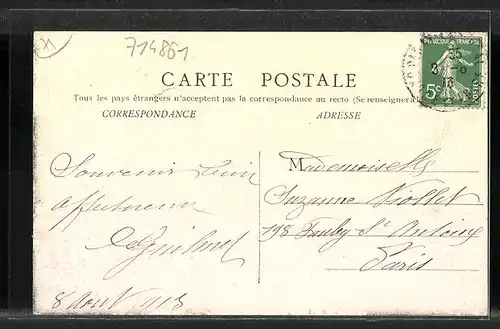 714861
CARTE POSTALE
Tous les pays étrangers n'acceptent pas la correspondance au recto (Se renseigner
CORRESPONDANCE
ADRESSE
REPUBLIQUE FRANÇAISE
5c
POSTES
Souvenir bien
affectueux
8 Août 1913
Mademoiselle
Suzanne Viollet
198 Faubg St Antoine
Paris